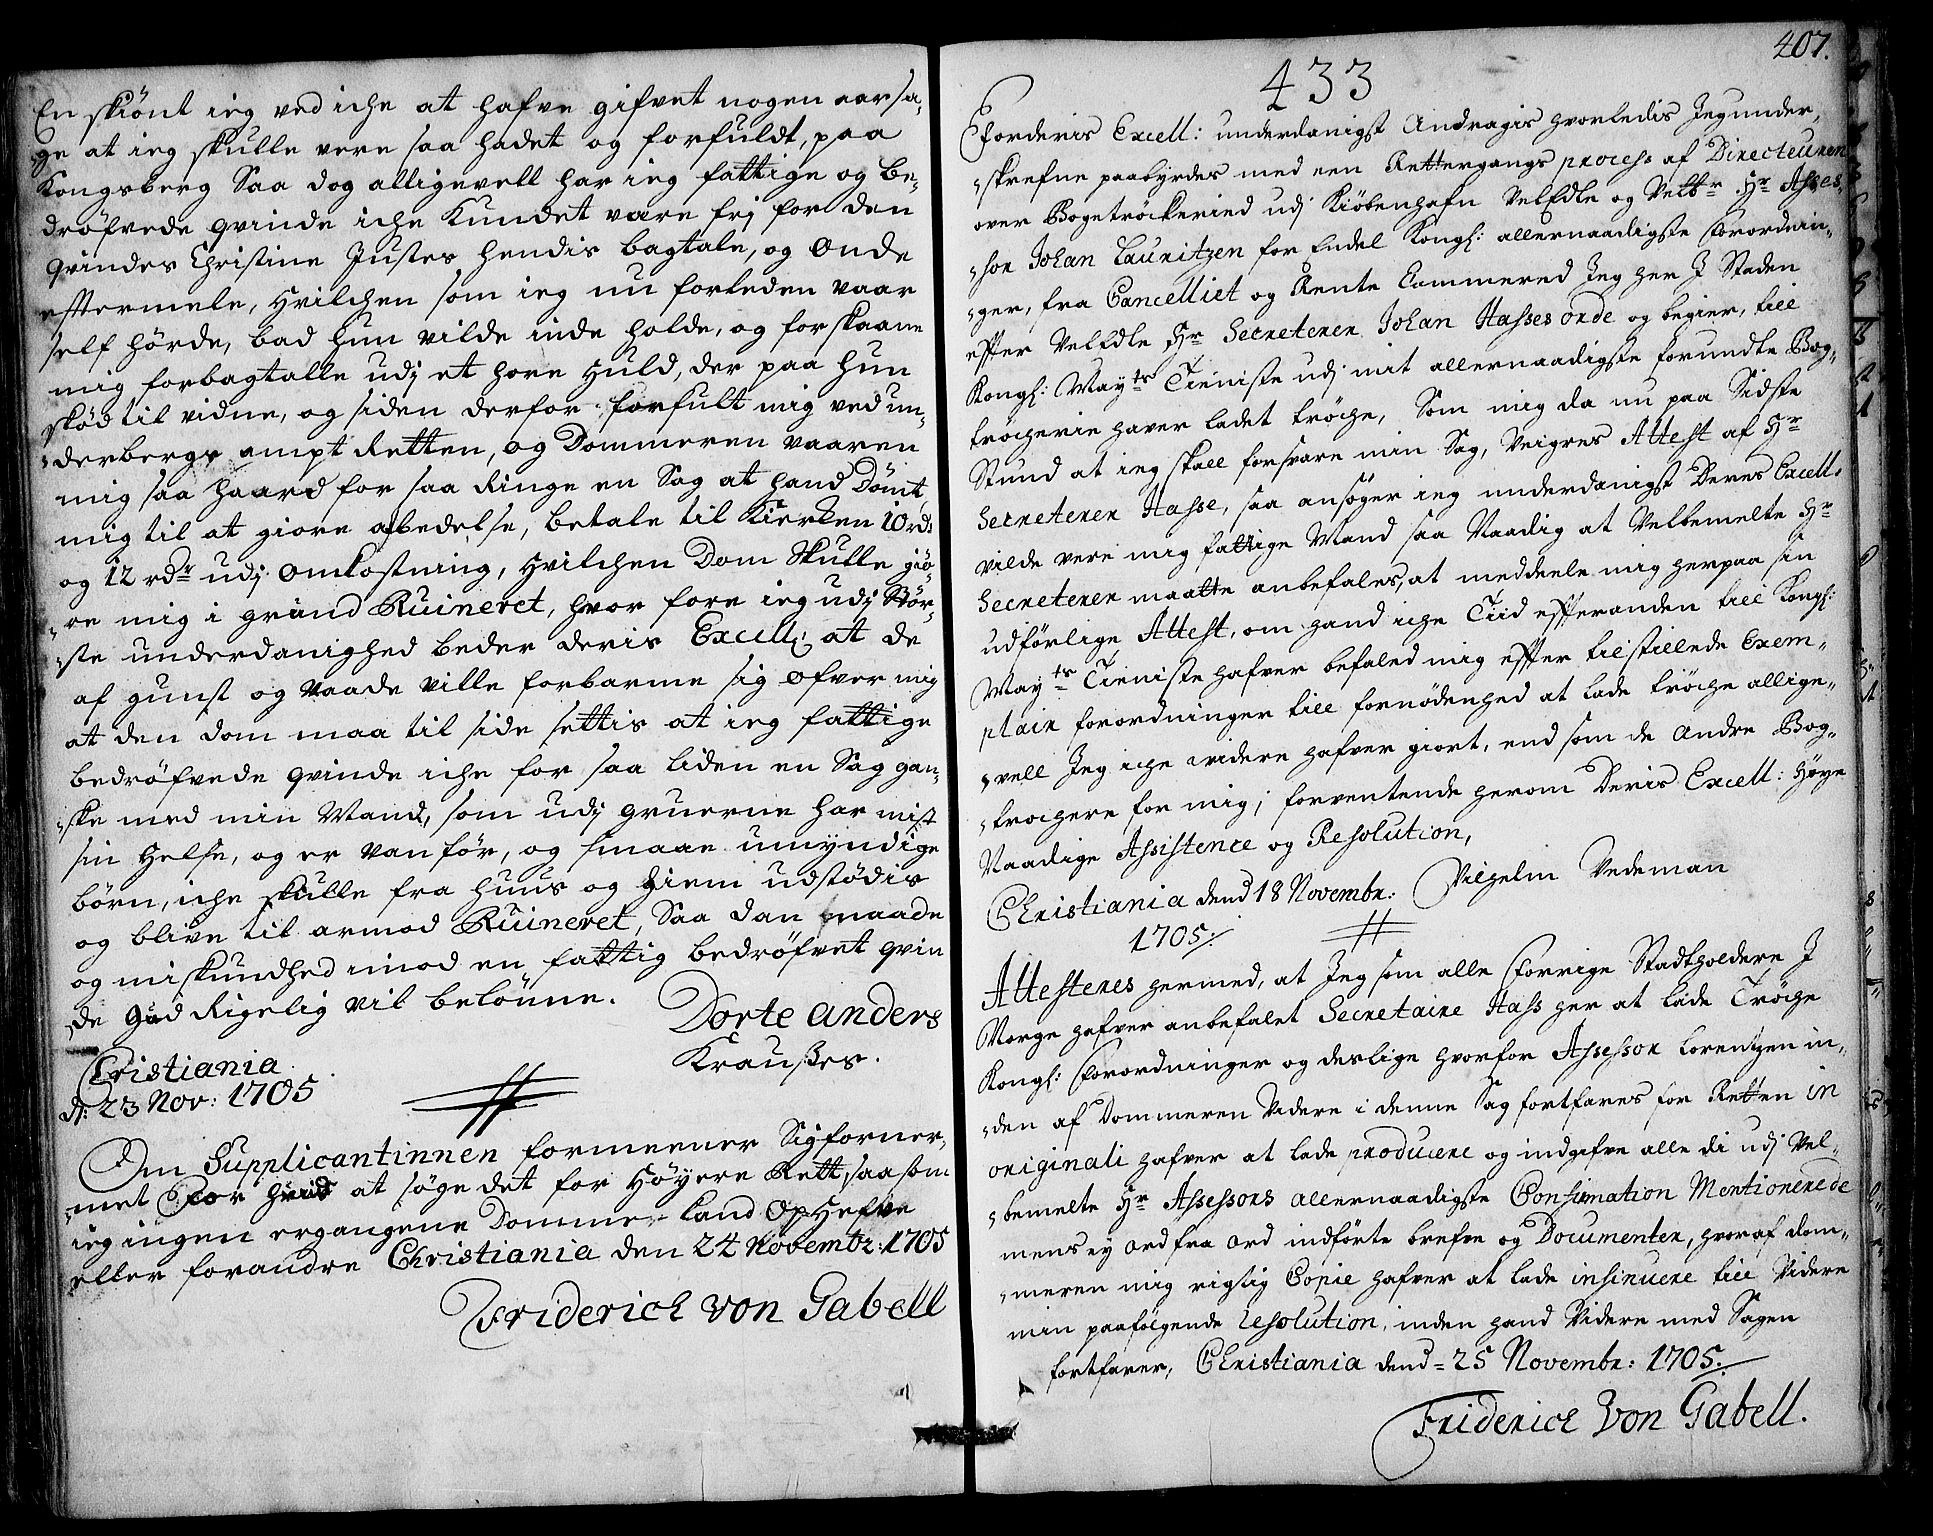 En skiönt ieg ved iche at hafve gifvet nogen aarsa-
ge at ieg skulle vere saa hadet og forfuldt, paa
Kongsberg Saa dog alligevell har ieg fattige og be-
dröfvede qvinde iche Kundet være frj for den
qvindes Christine Justes hendis bagtale, og onde
eftermele, Hvilchen som ieg nu forleden vaar
self hörde, bad hun vilde inde holde, og forskaane
mig forbagtalle udj et hore Huld, der paa hun
skiöd til vidne, og siden derfor forfult mig ved un-
derbergs ampt Retten, og Dommeren vaaren
mig saa haard for saa Ringe en Sag at hand Dömt
mig til at giore afbedelse, betale til Kierken 10 rd:
og 12 rdr udj omkostning, Hvilchen Dom Skulle giö-
re mig i grund Ruineret, hvor fore ieg udj Stör-
ste underdanighed beder deris Excell: at de
af gunst og naade ville forbarme sig ofver mig
at den dom maa til side settis at ieg fattige
bedröfvede qvinde iche for saa liden en Sag gan-
ske med min Mand, som udj gruerne har mist
sin Helse, og er vanför, og smaae umyndige
börn, iche skulle fra huus og hiem udstödis
og blive til armod Ruineret, Saa dan naade
og miskundhed imod en fattig bedröfvet qvin
de gud Rigelig vil belönne.
Dorte Anders
Kraußes.
Cristiania
d: 23 Nov: 1705
Om Supplicantinnen formeener Sig forner-
met staar hende at söge det for Höyere Rett, saasom
ieg ingen ergangene Domme kand Ophefve
eller forandre Christiania den 24 Novembr: 1705
Friderich von Gabell
407.
433
For deris Excell: underdanigst Andragis hvorledis Jeg under-
skrefne paabyrdes med een Rettergangs process af Directeuren
over Bogetröckeried udj Kiöbenhafn VelEdle og Velbr Hr Asses-
sor Johan Lauritzen for Endel Kongl: allernaadigste forordnin-
ger, fra Cancelliet og Rente Cammered Jeg her J Staden
efter VelEdle Hr Secreteren Johan Hasses orde og begier, till
Kongl: Mayts Tieniste udj mit allernaadigste forundte Bog-
tröcherie haver ladet tröche, Som mig da nu paa Sidste
Stund at ieg skall forsvare min Sag, Veigres Attest af Hr
Secreteren Hasse, saa ansöger ieg underdanigst Deres Excell:
vilde vere mig fattige Mand saa Naadig at Velbemelte Hr
Secreteren maatte anbefales, at meddeele mig herpaa sin
udförlige Attest, om hand iche Tiid efteranden till Kongl:
Mayts Tieniste hafver befaled mig efter tilstillede Exem-
plair forordninger till fornödenhed at lade tröche allige-
vell Jeg iche videre hafver giort, end som de Andre Bog-
trochere for mig; forventende herom Deris Excell: Höye
Naadige Assistence og Resolution,
Christiania dend 18 Novembr: Vilhelm Vedeman
1705:
Attesteres hermed, at Jeg som alle forrige Stadtholdere J
Norge hafver anbefalet Secretaire Hass her at lade Tröche
Kongl: forordninger og deslige hvorfor Assessor Lorentzen in-
den af Dommeren Videre i denne Sag fortfares for Retten in
originali hafver at lade producere og indgifve alle di udj Vel-
bemelte Hr Assessors allernaadigste Confirmation Mentionerede
mens ey ord fra ord indförte brefve og Documenter, hvoraf dom-
meren mig rigtig Copie hafver at lade insinuere till Videre
min paafölgende resolution, inden hand Videre med Sagen
fortfarer, Christiania dend 25 Novembr: 1705.
Friderich Von Gabell.